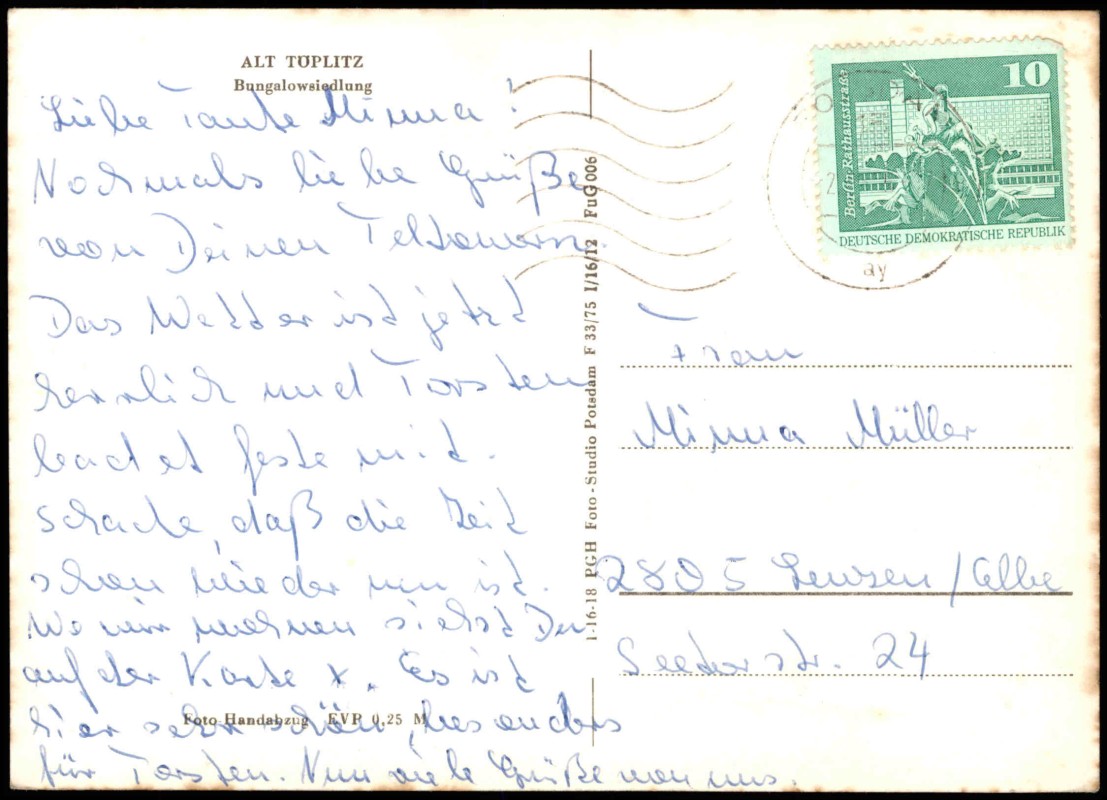 ALT TÖPLITZ
Bungalowsiedlung
Liebe Tante Minna!
Nochmals liebe Grüße
von Deinen Teltowern.
Das Wetter ist jetzt
herrlich und Torsten
badet feste mit.
Schade, daß die Zeit
schon wieder um ist.
Wo wir wohnen siehst Du
auf der Karte x. Es ist
hier sehr schön, besonders
für Torsten. Nun viele Grüße von uns.
Foto-Handabzug EVP 0,25 M
1-16-18 PGH Foto-Studio Potsdam F 33/75 I/16/12 FuG 006
10
Berlin·Rathausstraße
DEUTSCHE DEMOKRATISCHE REPUBLIK
ay
Frau
Minna Müller
2805 Lenzen/Elbe
Seetorstr. 24